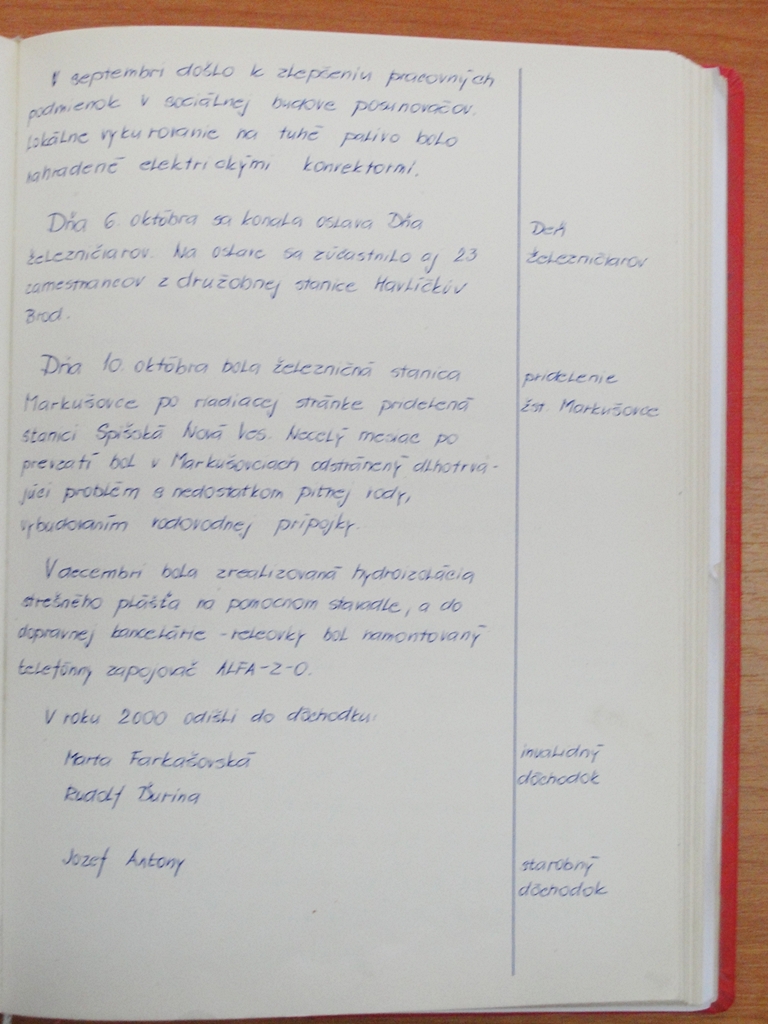 V septembri došlo k zlepšeniu pracovných
podmienok v sociálnej budove posunovačov.
Lokálne vykurovanie na tuhé palivo bolo
nahradené elektrickými konvektormi.
Dňa 6. októbra sa konala oslava Dňa
železničiarov. Na oslave sa zúčastnilo aj 23
zamestnancov z družobnej stanice Havlíčkúv
Brod.
Deň
železničiarov
Dňa 10. októbra bola železničná stanica
Markušovce po riadiacej stránke pridelená
stanici Spišská Nová Ves. Necelý mesiac po
prevzatí bol v Markušovciach odstránený dlhotrvá-
júci problém s nedostatkom pitnej vody,
vybudovaním vodovodnej prípojky.
pridelenie
žst. Markušovce
V decembri bola zrealizovaná hydroizolácia
strešného plášťa na pomocnom stavadle, a do
dopravnej kancelárie - releovky bol namontovaný
telefónny zapojovač ALFA-2-0.
V roku 2000 odišli do dôchodku:
Marta Farkašovská
Rudolf Ďurina
invalidný
dôchodok
Jozef Antony
starobný
dôchodok